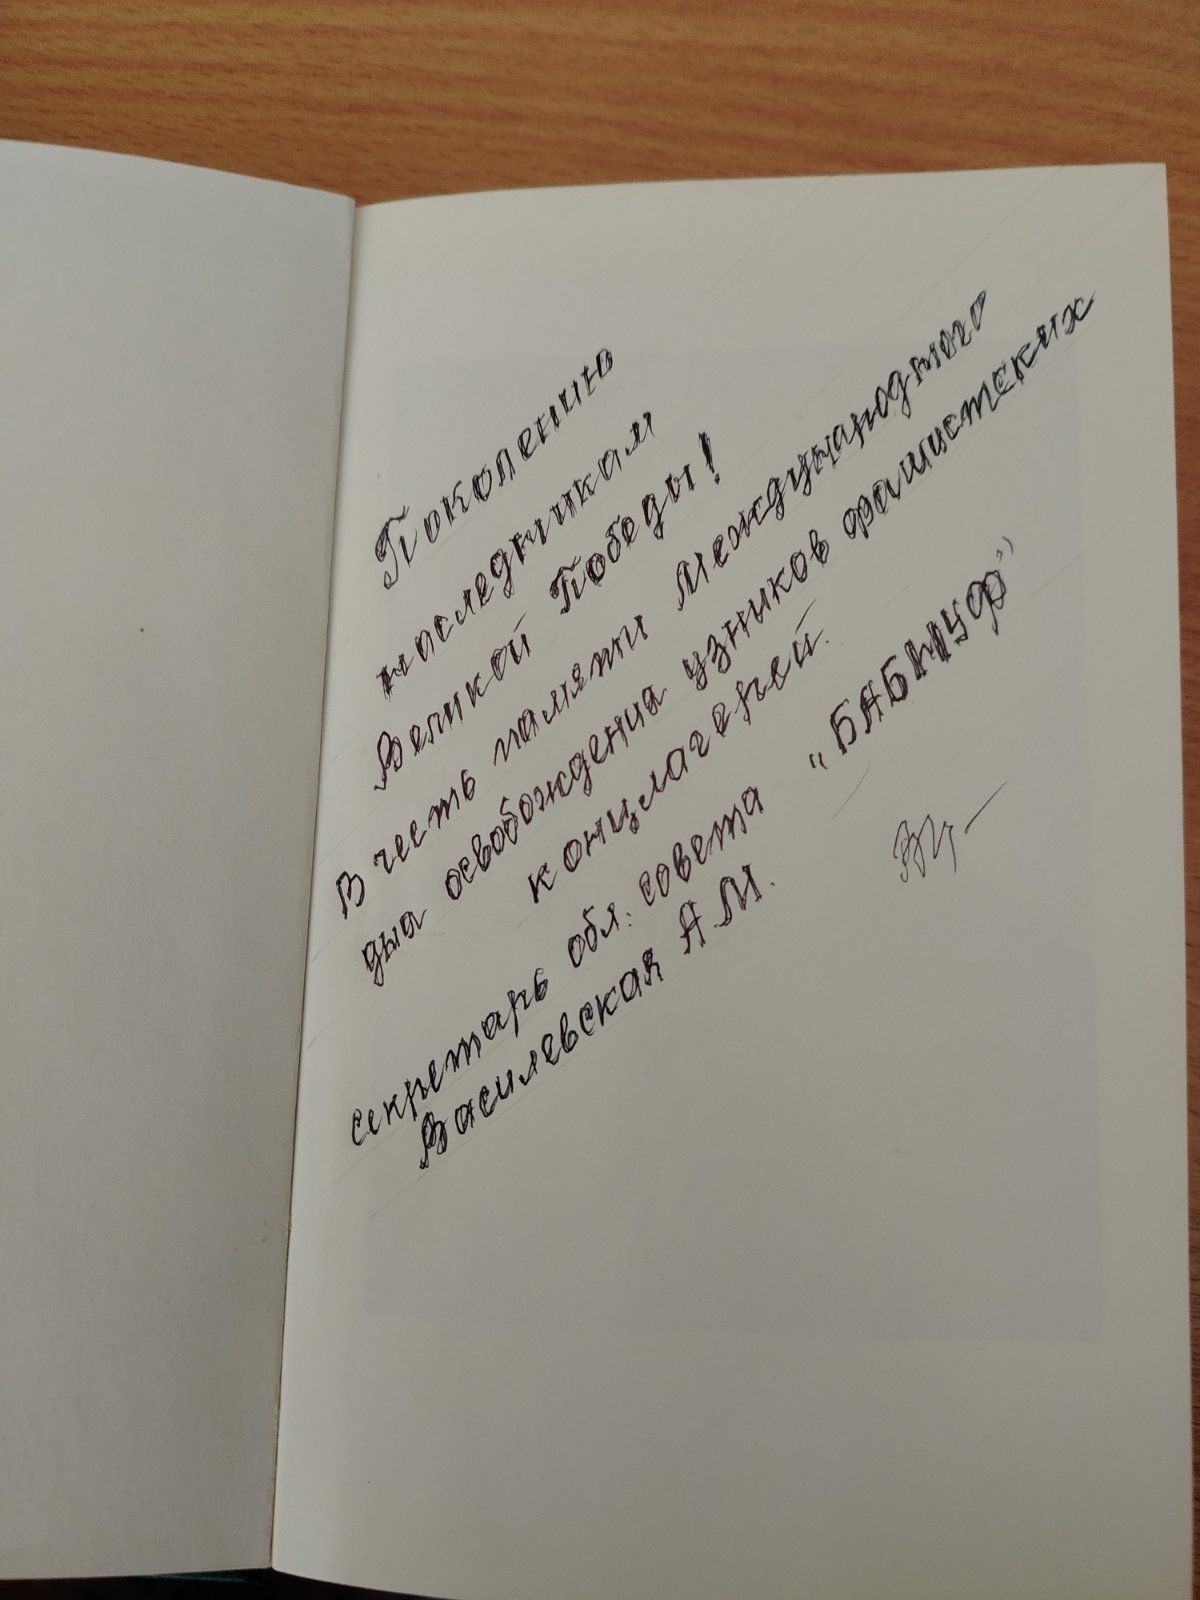 Поколению
наследникам
Великой Победы!
В честь памяти Международного
дня освобождения узников фашистских
концлагерей.
секретарь обл. совета "БАБМУФ"
Василевская А.М.